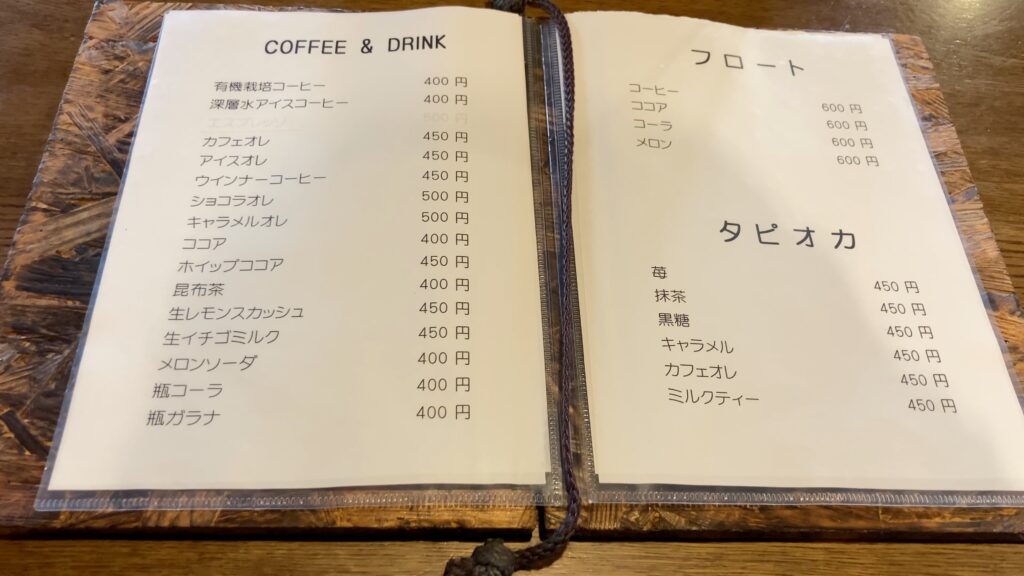 COFFEE & DRINK
有機栽培コーヒー 400 円
深層水アイスコーヒー 400 円
エスプレッソ 500 円
カフェオレ 450 円
アイスオレ 450 円
ウインナーコーヒー 450 円
ショコラオレ 500 円
キャラメルオレ 500 円
ココア 400 円
ホイップココア 450 円
昆布茶 400 円
生レモンスカッシュ 450 円
生イチゴミルク 450 円
メロンソーダ 400 円
瓶コーラ 400 円
瓶ガラナ 400 円
フロート
コーヒー 600 円
ココア 600 円
コーラ 600 円
メロン 600 円
タピオカ
苺 450 円
抹茶 450 円
黒糖 450 円
キャラメル 450 円
カフェオレ 450 円
ミルクティー 450 円